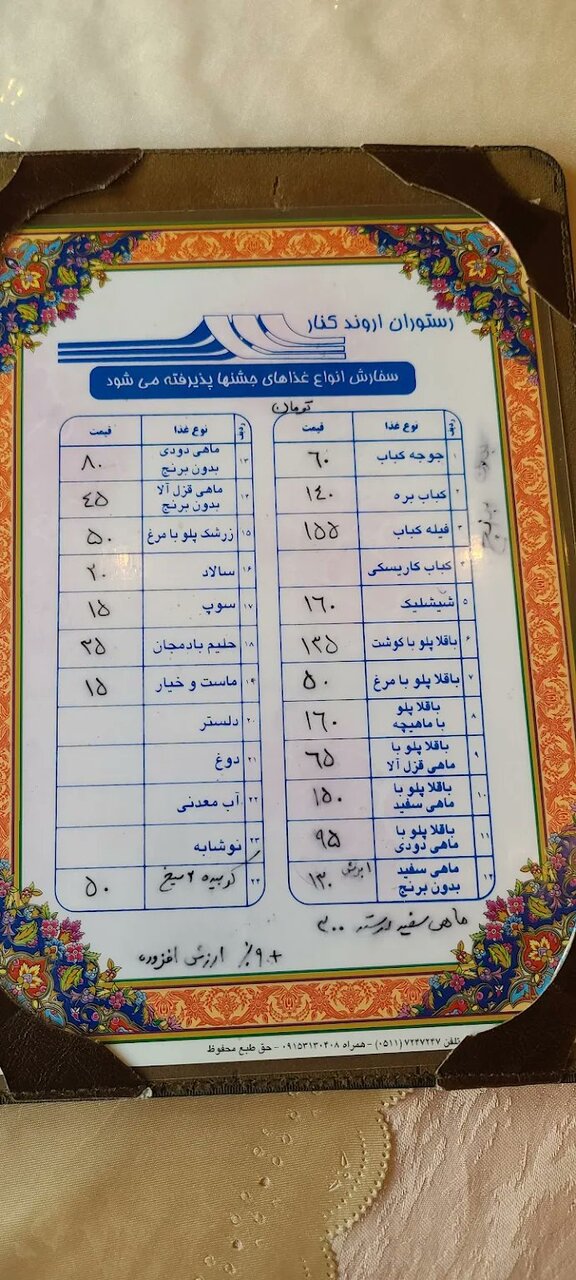 رستوران اروند کنار
سفارش انواع غذاهای جشنها پذیرفته می شود
تومان
ردیف نوع غذا قیمت
۱ جوجه کباب ۶۰
۲ کباب بره ۱۴۰
۳ فیله کباب ۱۵۵
۴ کباب کاریسکی
۵ شیشلیک ۱۶۰
۶ باقلا پلو با گوشت ۱۳۵
۷ باقلا پلو با مرغ ۵۰
۸ باقلا پلو
با ماهیچه ۱۶۰
۹ باقلا پلو با
ماهی قزل آلا ۶۵
۱۰ باقلا پلو با
ماهی سفید ۱۵۰
۱۱ باقلا پلو با
ماهی دودی ۹۵
۱۲ ماهی سفید
بدون برنج ۱۳۰
ردیف نوع غذا قیمت
۱۳ ماهی دودی
بدون برنج ۸۰
۱۴ ماهی قزل آلا
بدون برنج ۴۵
۱۵ زرشک پلو با مرغ ۵۰
۱۶ سالاد ۲۰
۱۷ سوپ ۱۵
۱۸ حلیم بادمجان ۲۵
۱۹ ماست و خیار ۱۵
۲۰ دلستر
۲۱ دوغ
۲۲ آب معدنی
۲۳ نوشابه
۲۴ کوبیده ۲ سیخ ۵۰
ماهی سفید درسته ۳۰۰
+۹٪ ارزش افزوده
تلفن ۷۲۴۷۲۴۷ (۰۵۱۱) - همراه ۰۹۱۵۳۱۳۰۴۰۸ - حق طبع محفوظ